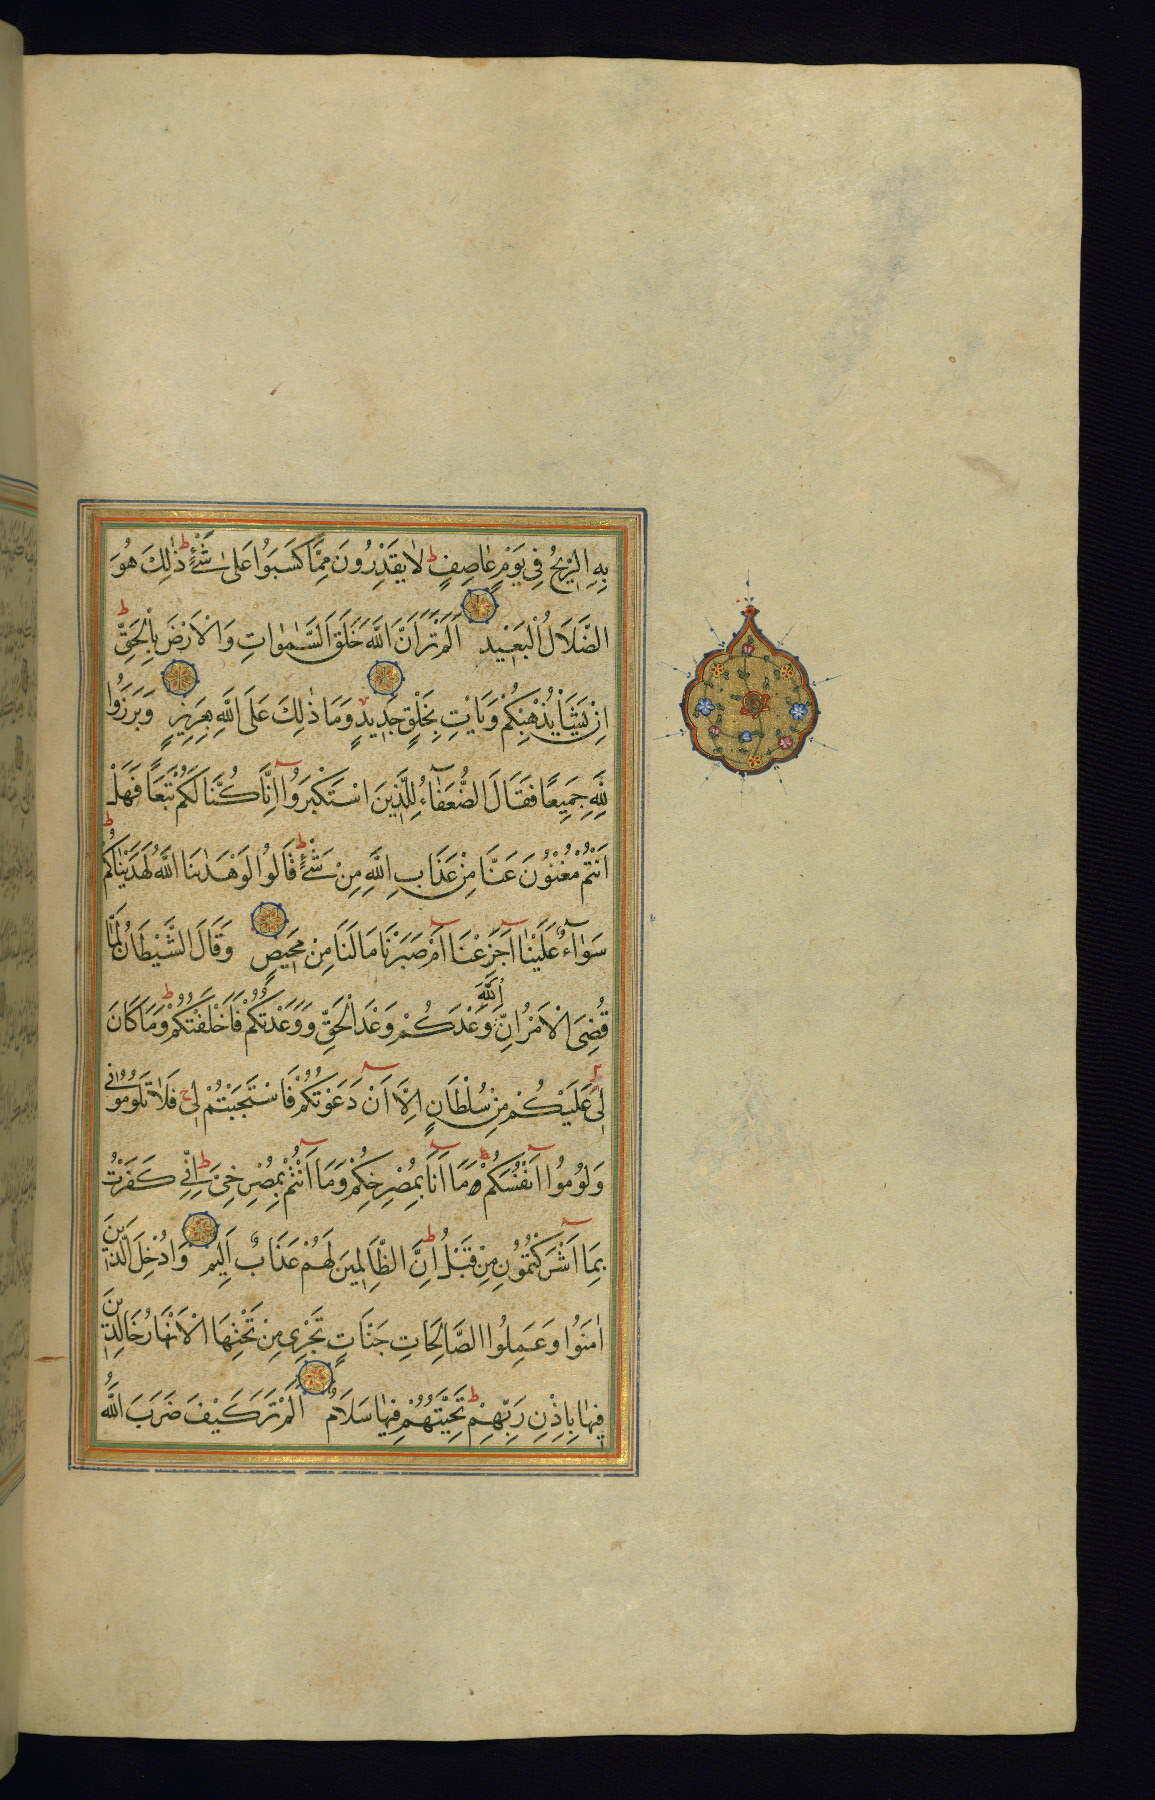 بِهِ الرِّيحُ فِي يَوْمٍ عَاصِفٍ ط لَا يَقْدِرُونَ مِمَّا كَسَبُوا عَلَىٰ شَيْءٍ ط ذٰلِكَ هُوَ
الضَّلَالُ الْبَعِيدُ اَلَمْ تَرَ اَنَّ اللَّهَ خَلَقَ السَّمٰوَاتِ وَالْاَرْضَ بِالْحَقِّ ط
اِنْ يَشَأْ يُذْهِبْكُمْ وَيَأْتِ بِخَلْقٍ جَدِيدٍ وَمَا ذٰلِكَ عَلَى اللَّهِ بِعَزِيزٍ وَبَرَزُوا
لِلَّهِ جَمِيعًا فَقَالَ الضُّعَفٰٓاءُ لِلَّذِينَ اسْتَكْبَرُوا اِنَّا كُنَّا لَكُمْ تَبَعًا فَهَلْ
اَنْتُمْ مُغْنُونَ عَنَّا مِنْ عَذَابِ اللَّهِ مِنْ شَيْءٍ ط قَالُوا لَوْ هَدٰىنَا اللَّهُ لَهَدَيْنَاكُمْ ط
سَوَآءٌ عَلَيْنَا اَجَزِعْنَا اَمْ صَبَرْنَا مَا لَنَا مِنْ مَحِيصٍ وَقَالَ الشَّيْطَانُ لَمَّا
قُضِيَ الْاَمْرُ اِنَّ اللَّهَ وَعَدَكُمْ وَعْدَ الْحَقِّ وَوَعَدْتُكُمْ فَاَخْلَفْتُكُمْ ط وَمَا كَانَ
لِيَ عَلَيْكُمْ مِنْ سُلْطَانٍ اِلَّا اَنْ دَعَوْتُكُمْ فَاسْتَجَبْتُمْ لِي ج فَلَا تَلُومُونِي
وَلُومُوا اَنْفُسَكُمْ ط مَا اَنَا بِمُصْرِخِكُمْ وَمَا اَنْتُمْ بِمُصْرِخِيَّ ط اِنِّي كَفَرْتُ
بِمَا اَشْرَكْتُمُونِ مِنْ قَبْلُ ط اِنَّ الظَّالِمِينَ لَهُمْ عَذَابٌ اَلِيمٌ وَاُدْخِلَ الَّذِينَ
اٰمَنُوا وَعَمِلُوا الصَّالِحَاتِ جَنَّاتٍ تَجْرِي مِنْ تَحْتِهَا الْاَنْهَارُ خَالِدِينَ
فِيهَا بِاِذْنِ رَبِّهِمْ ط تَحِيَّتُهُمْ فِيهَا سَلَامٌ اَلَمْ تَرَ كَيْفَ ضَرَبَ اللَّهُ